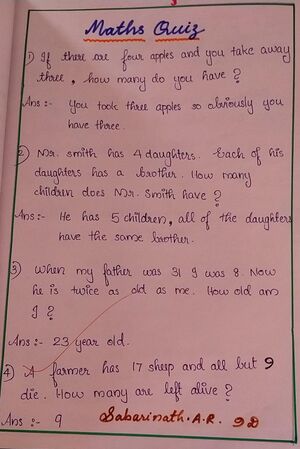 Maths Quiz
1) If there are four apples and you take away
three, how many do you have ?
Ans :- You took three apples so obviously you
have three.
2) Mr. Smith has 4 daughters. Each of his
daughters has a brother. How many
children does Mr. Smith have ?
Ans :- He has 5 children, all of the daughters
have the same brother.
3) When my father was 31 I was 8. Now
he is twice as old as me. How old am
I ?
Ans :- 23 year old.
4) A farmer has 17 sheep and all but 9
die. How many are left alive ?
Ans :- 9 Sabarinath. A.R. 9D